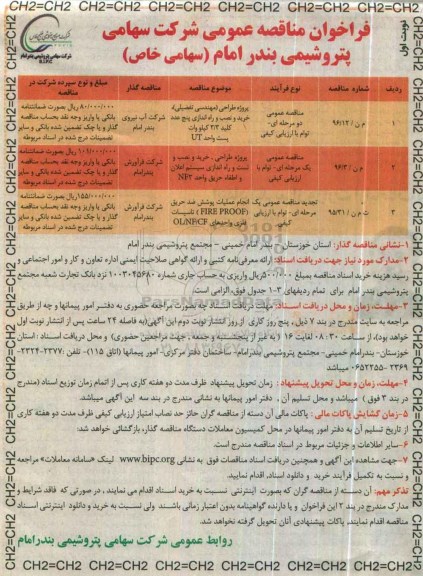 نوبت اول
فراخوان مناقصه عمومی شرکت سهامی
پتروشیمی بندر امام (سهامی خاص)
شرکت سهامی پتروشیمی بندر امام
B.I.P.C
ردیف | شماره مناقصه | نوع فرآیند | موضوع مناقصه | مناقصه گذار | مبلغ و نوع سپرده شرکت در مناقصه
۱ | م ن / ۹۶/۱۲ | مناقصه عمومی دو مرحله ای- توام با ارزیابی کیفی | پروژه طراحی (مهندسی تفصیلی)، خرید و نصب و راه اندازی پنج عدد کلید ۳/۳ کیلووات پست واحد UT | شرکت آب نیروی بندر امام | ۸۱۰/۰۰۰/۰۰۰ ریال بصورت ضمانتنامه بانکی یا واریز وجه نقد بحساب مناقصه گذار و یا چک تضمین شده بانکی و سایر موارد درج شده در اسناد مربوطه
۲ | م ن / ۹۶/۳ | مناقصه عمومی یک مرحله ای- توام با ارزیابی کیفی | پروژه طراحی - خرید و نصب و تست و راه اندازی سیستم اعلان و اطفاء حریق واحد NF2 | شرکت فرآورش بندر امام | ۱۰۱/۰۰۰/۰۰۰ ریال بصورت ضمانتنامه بانکی یا واریز وجه نقد بحساب مناقصه گذار و یا چک تضمین شده بانکی و سایر موارد درج شده در اسناد مربوطه
۳ | ت م ن / ۹۵/۳۱ | تجدید مناقصه عمومی یک مرحله ای- توام با ارزیابی کیفی | انجام عملیات پوشش ضد حریق (FIRE PROOF) تاسیسات فلزی واحدهای OL/NF/CF | شرکت فرآورش بندر امام | ۱۵۵/۰۰۰/۰۰۰ ریال بصورت ضمانتنامه بانکی یا واریز وجه نقد بحساب مناقصه گذار و یا چک تضمین شده بانکی و سایر موارد درج شده در اسناد مربوطه
۱-نشانی مناقصه گذار: استان خوزستان - بندر امام خمینی - مجتمع پتروشیمی بندر امام
۲-مدارک مورد نیاز جهت دریافت اسناد: ارائه معرفی‌نامه کتبی و ارائه گواهی صلاحیت ایمنی اداره تعاون و کار و امور اجتماعی و
رسید هزینه خرید اسناد مناقصه بمبلغ ۵۰۰/۰۰۰ ریال واریزی به حساب جاری شماره ۱۰۰۳۰۴۵۶۸۰ نزد بانک تجارت شعبه مجتمع
پتروشیمی بندر امام برای تمام ردیفهای ۳-۱ جدول فوق، الزامی است.
۳-مهلت، زمان و محل دریافت اسناد: مهلت دریافت اسناد چه بصورت مراجعه حضوری به دفتر امور پیمانها و چه از طریق
مراجعه به سایت مندرج در بند ۷ ذیل، پنج روز کاری از روز انتشار نوبت دوم این آگهی(به فاصله ۲۴ ساعت پس از انتشار نوبت اول
خواهد بود)، از ساعت ۰۸:۳۰ لغایت ۱۶ (به غیر از پنجشنبه و جمعه، جهت مراجعین حضوری) و محل دریافت اسناد: استان
خوزستان- بندرامام خمینی- مجتمع پتروشیمی بندرامام- ساختمان دفتر مرکزی- امور پیمانها (اتاق ۱۱۵)- تلفن ۲۳۷۷-۲۳۲۴-
۲۳۶۹-۰۶۵۲۲۵۵ میباشد.
۴-مهلت، زمان و محل تحویل پیشنهاد: زمان تحویل پیشنهاد ظرف مدت دو هفته کاری پس از اتمام زمان توزیع اسناد (مندرج
در بند ۳ فوق) میباشد و محل تسلیم آن، دفتر امور پیمانها به نشانی مندرج در بند سه این آگهی میباشد.
۵-زمان گشایش پاکات مالی: پاکات مالی آن دسته از مناقصه گران حائز حد نصاب امتیاز ارزیابی کیفی ظرف مدت دو هفته کاری
از تاریخ تسلیم آن به دفتر امور پیمانها در محل کمیسیون معاملات دستگاه مناقصه گذار، بازگشائی خواهد شد.
۶-سایر اطلاعات و جزئیات مربوط در اسناد مناقصه مندرج است.
۷-جهت مشاهده این آگهی و همچنین دریافت اسناد مناقصات فوق به نشانی www.bipc.org لینک «سامانه معاملات» مراجعه
و نسبت به تکمیل فرآیند خرید و دانلود اسناد، اقدام نمایید.
تذکر مهم: آن دسته از مناقصه گران که بصورت اینترنتی نسبت به خرید اسناد اقدام می نمایند، در صورتی که فاقد شرایط و
مدارک مندرج در بند ۲ این فراخوان و یا دارنده گواهینامه بدون اعتبار زمانی باشند ولی نسبت به خرید و دانلود اینترنتی اسناد
مناقصه اقدام نمایند، پاکات پیشنهادی آنان تحویل گرفته نخواهد شد.
روابط عمومی شرکت سهامی پتروشیمی بندرامام
CH2=CH2 CH2=CH2 CH2=CH2 CH2=CH2 CH2=CH2 CH2=CH2 CH2=CH2